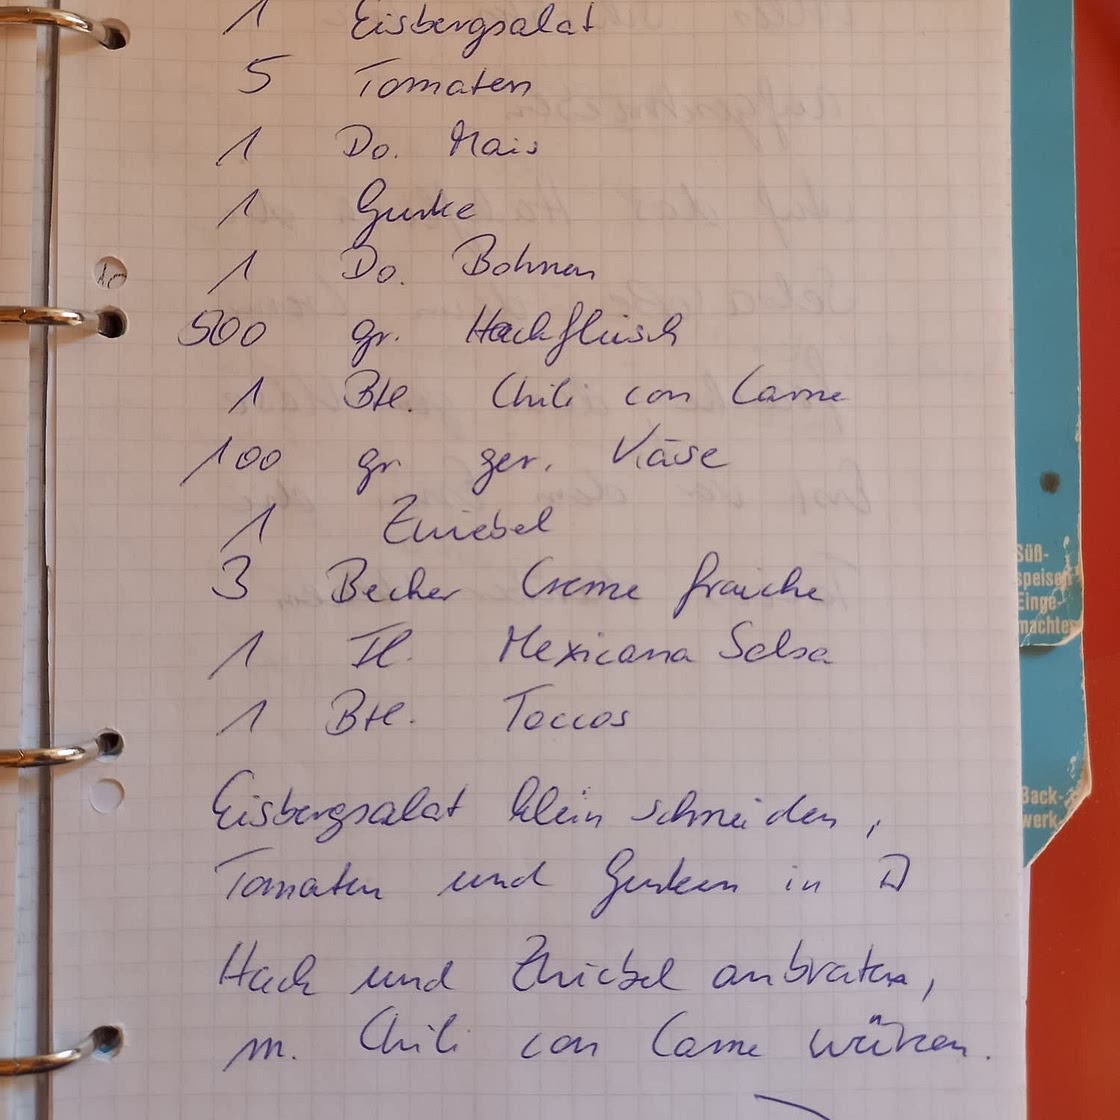 1 Eisbergsalat
5 Tomaten
1 Do. Mais
1 Gurke
1 Do. Bohnen
500 gr. Hackfleisch
1 Btl. Chili con Carne
100 gr. ger. Käse
1 Zwiebel
3 Becher Creme fraiche
1 Fl. Mexicana Salsa
1 Btl. Taccos
Eisbergsalat klein schneiden,
Tomaten und Gurken in
Hack und Zwiebel anbraten,
m. Chili con Carne würzen.
Süß-
speisen
Einge-
machtes
Back-
werk